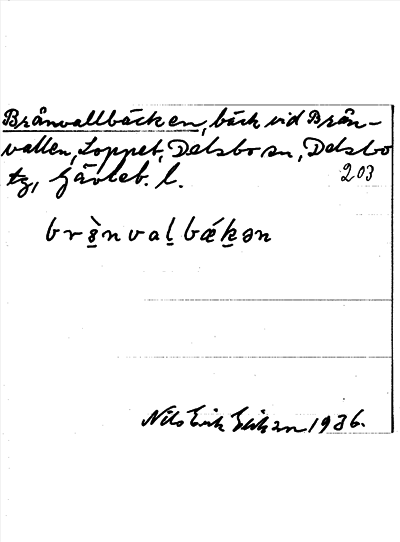 Brånvallbäcken, bäck vid Brån-
vallen, Loppet, Delsbo sn, Delsbo
tg, Gävleb. l.
203
brånvaḷbǽḵən
Nils Erik Eliksson 1936.